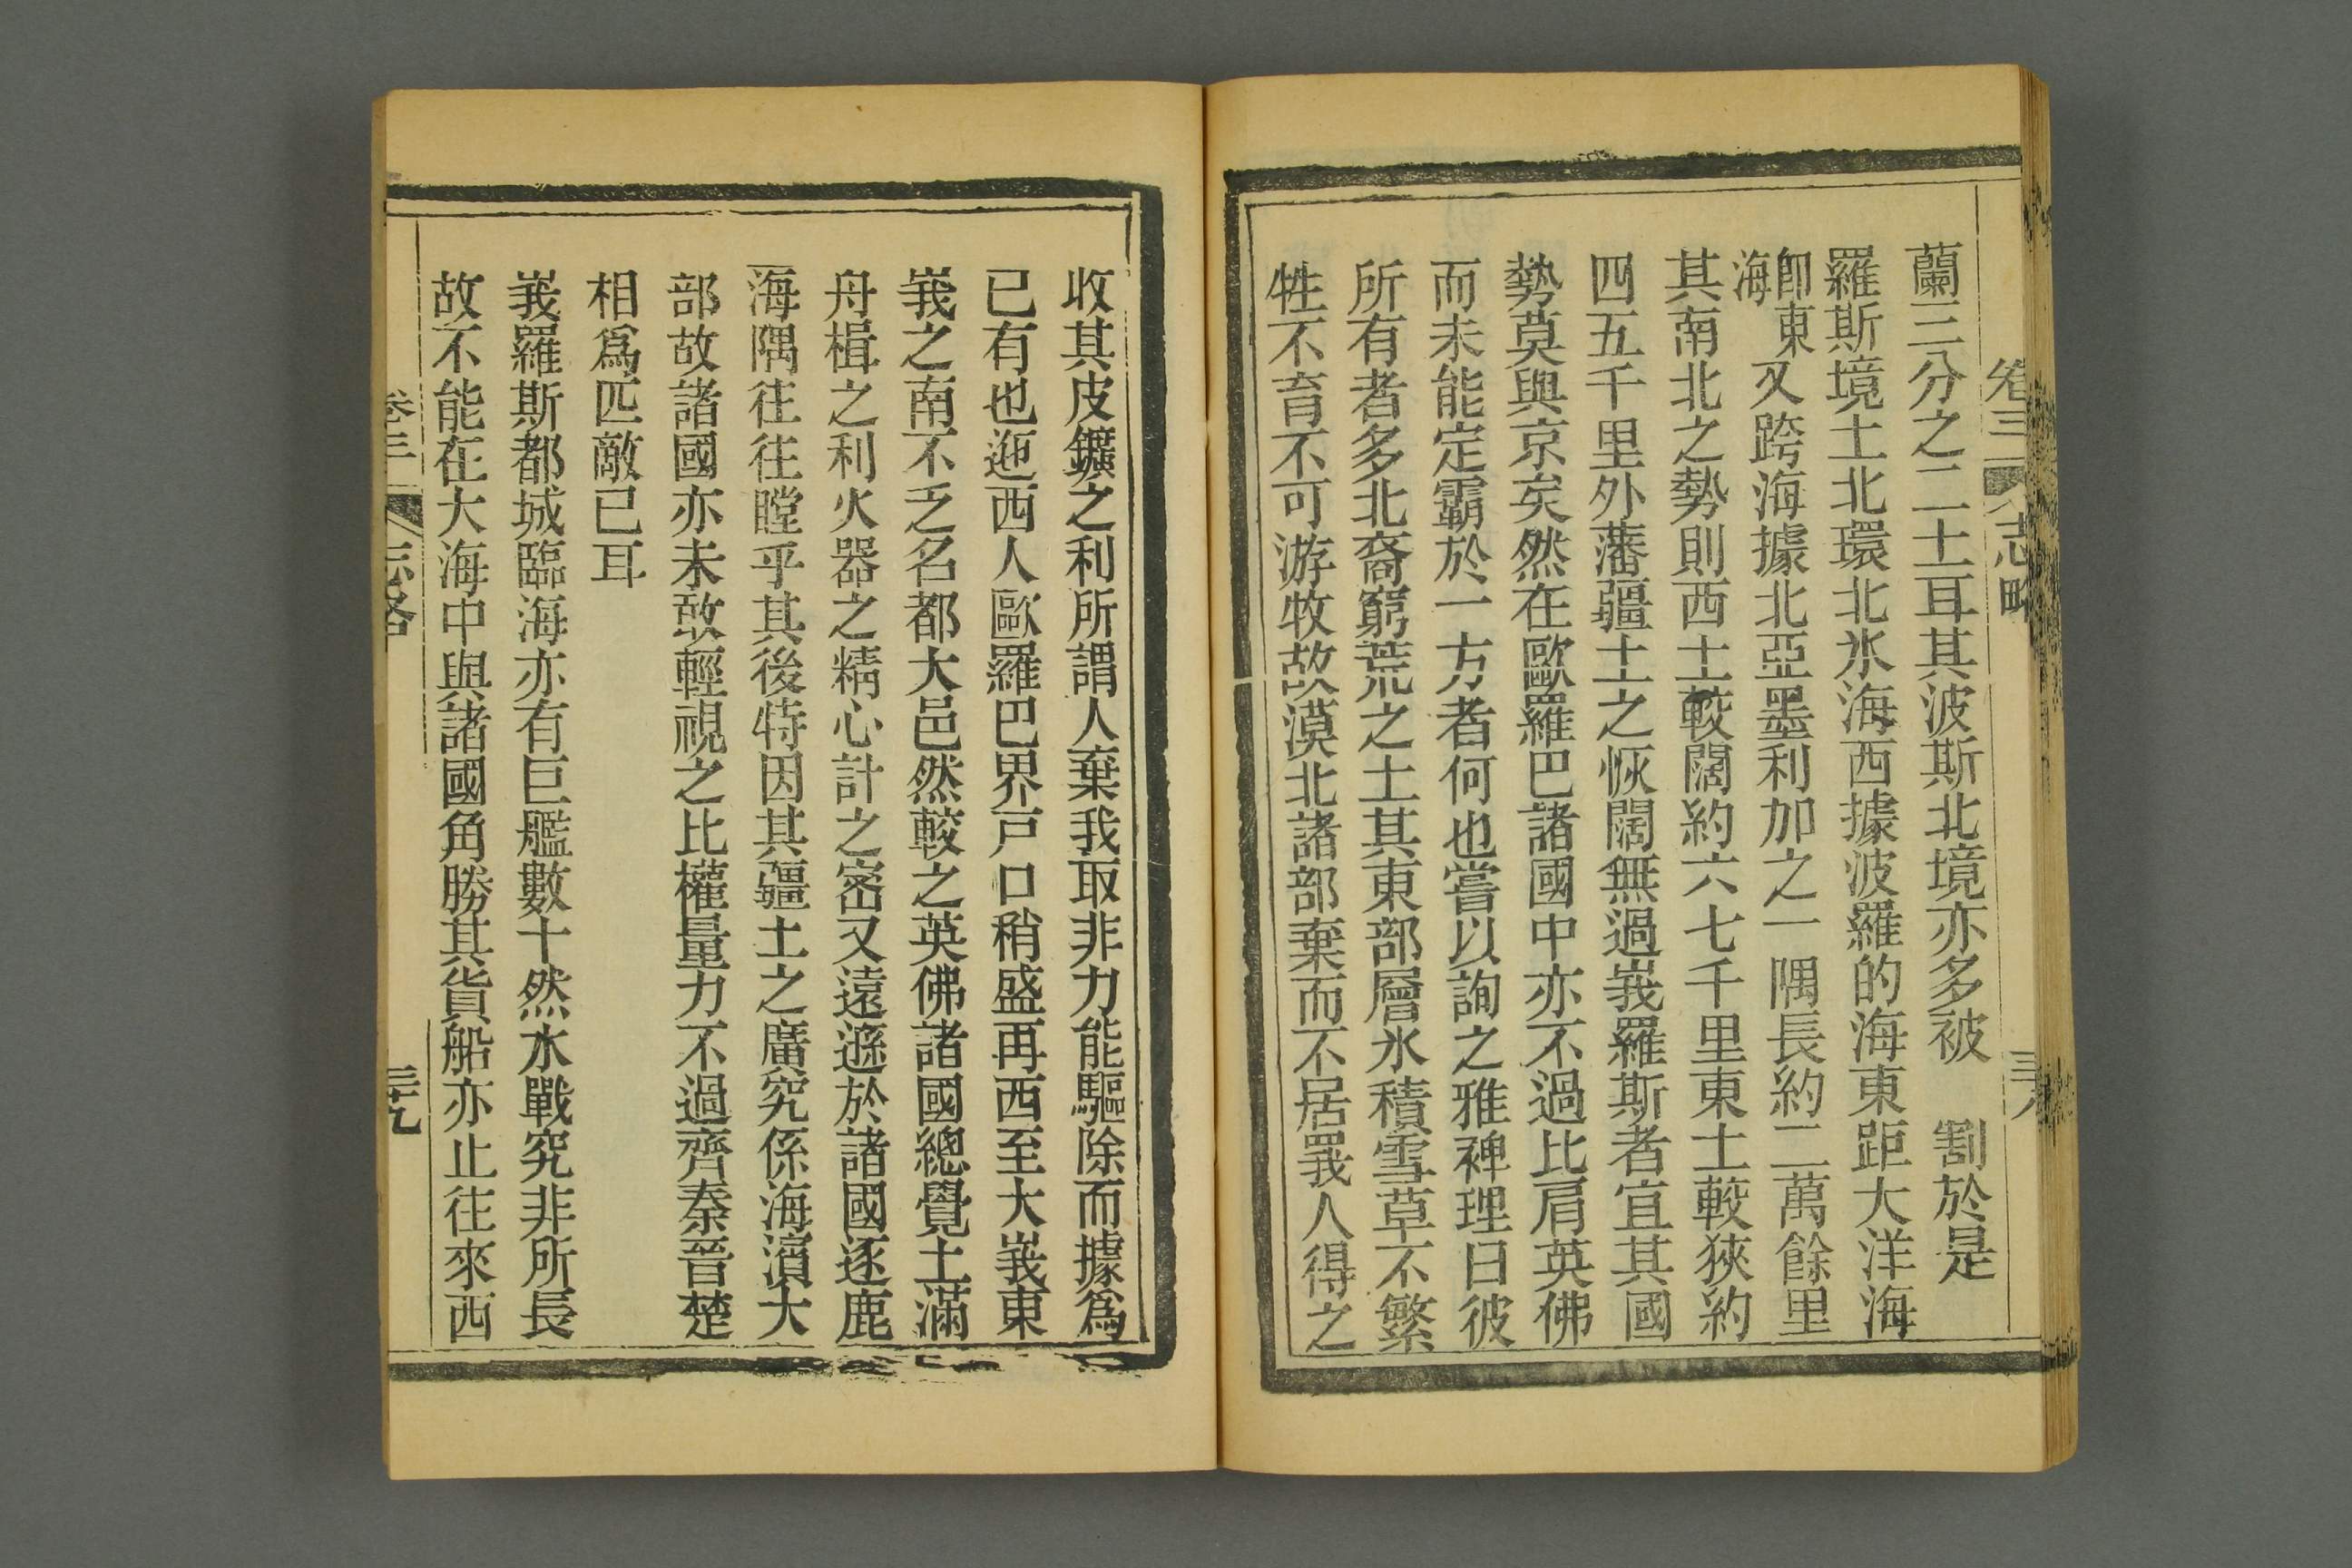 卷三 志略
蘭三分之二土耳其波斯北境亦多被 割於是
羅斯境土北環北氷海西據波羅的海東距大洋海
即東海又跨海據北亞墨利加之一隅長約二萬餘里
其南北之勢則西土較闊約六七千里東土較狹約
四五千里外藩疆土之恢闊無過峩羅斯者宜其國
勢莫與京矣然在歐羅巴諸國中亦不過比肩英佛
而未能定霸於一方者何也嘗以詢之雅裨理曰彼
所有者多北裔窮荒之土其東部層氷積雪草不繁
牲不育不可游牧故漠北諸部棄而不居峩人得之
收其皮鑛之利所謂人棄我取非力能驅除而據爲
已有也迤西人歐羅巴界戸口稍盛再西至大峩東
峩之南不乏名都大邑然較之英佛諸國總覺土滿
舟楫之利火器之精心計之密又遠遜於諸國逐鹿
海隅往往瞠乎其後特因其疆土之廣究係海濱大
部故諸國亦未敢輕視之比權量力不過齊秦晉楚
相爲匹敵已耳
峩羅斯都城臨海亦有巨艦數十然水戰究非所長
故不能在大海中與諸國角勝其貨船亦止往來西
卷三 志略 三九